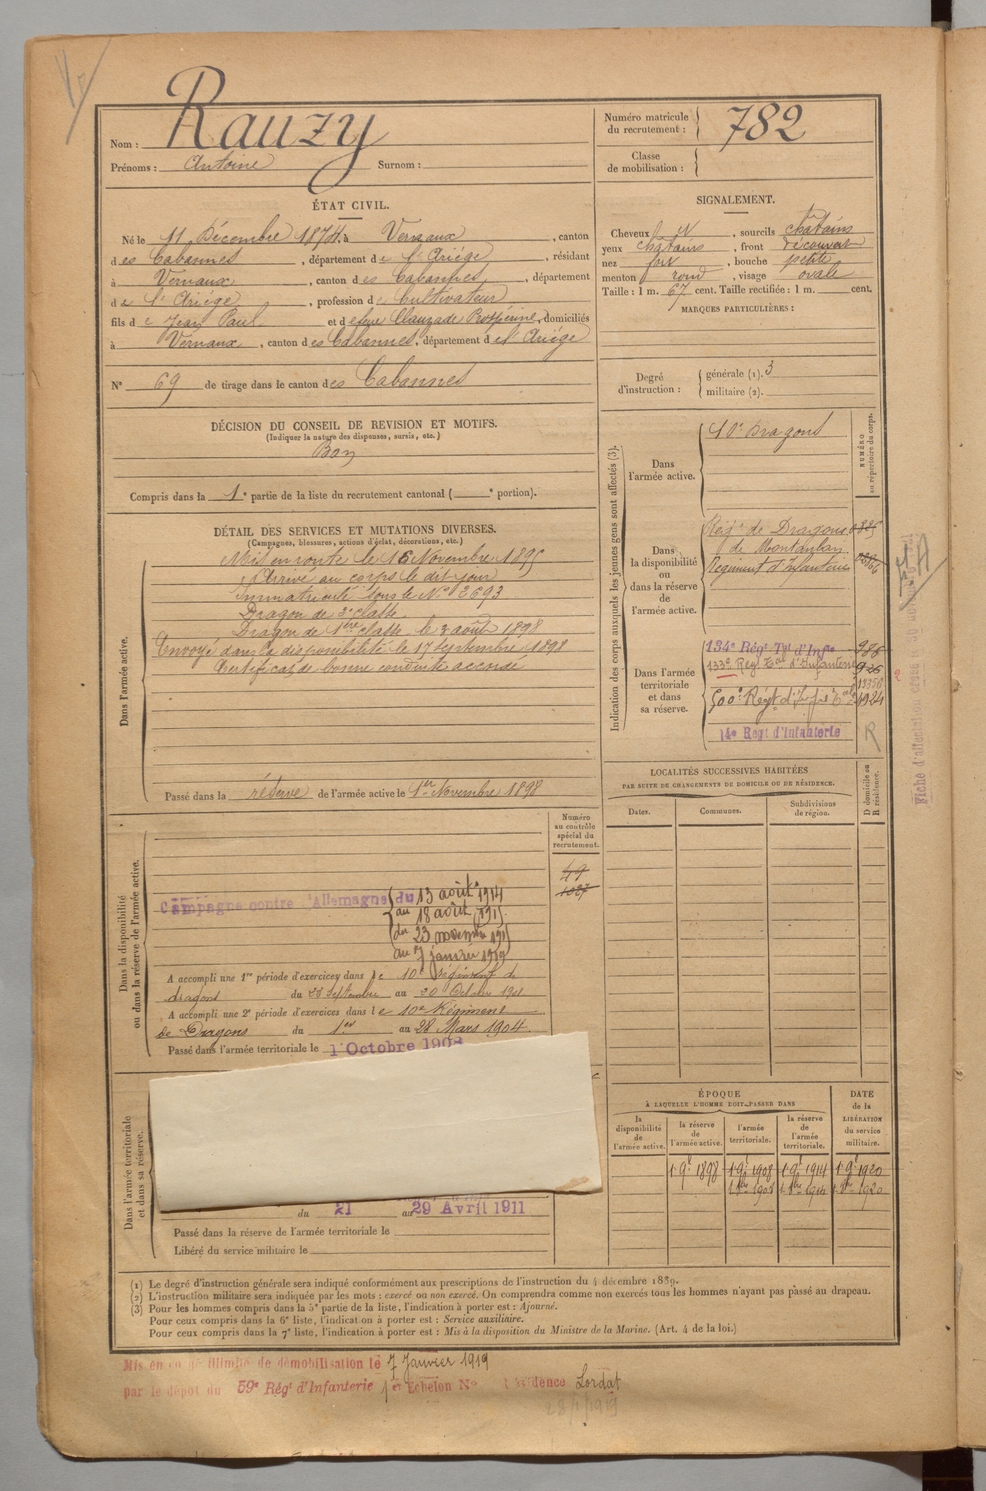 Nom : Rauzy
Prénoms : Antoine Surnom :
Numéro matricule du recrutement : 782
Classe de mobilisation :
ÉTAT CIVIL.
Né le 11 Décembre 1874, à Vernaux, canton
des Cabannes, département de l'Ariège, résidant
à Vernaux, canton des Cabannes, département
de l'Ariège, profession de Cultivateur
fils de Jean Paul et de feue Clauzade Prospérine, domiciliés
à Vernaux, canton des Cabannes, département de l'Ariège
N° 69 de tirage dans le canton des Cabannes
SIGNALEMENT.
Cheveux , sourcils chatains
yeux chatains, front découvert
nez fort, bouche petite
menton rond, visage ovale
Taille : 1 m. 67 cent. Taille rectifiée : 1 m. cent.
MARQUES PARTICULIÈRES :
Degré d'instruction : générale (1). 3
militaire (2).
DÉCISION DU CONSEIL DE REVISION ET MOTIFS.
(Indiquer la nature des dispenses, sursis, etc.)
Bon
Compris dans la 1e partie de la liste du recrutement cantonal ( e portion).
DÉTAIL DES SERVICES ET MUTATIONS DIVERSES.
(Campagnes, blessures, actions d'éclat, décorations, etc.)
Dans l'armée active.
Mis en route le 16 Novembre 1895
Arrivé au corps le dit jour
Immatriculé sous le N° 2693
Dragon de 2e classe
Dragon de 1ère classe le 3 août 1898
Envoyé dans la disponibilité le 17 septembre 1898
Certificat de bonne conduite accordé
Passé dans la réserve de l'armée active le 1er Novembre 1898
Indication des corps auxquels les jeunes gens sont affectés (3).
NUMÉRO au répertoire du corps.
Dans l'armée active.
10e Dragons
Dans la disponibilité ou dans la réserve de l'armée active.
Régt de Dragons
de Montauban
Régiment d'Infanterie
Dans l'armée territoriale et dans sa réserve.
134e Régt Tal d'Infie 986
133e Rég. Tal d'Infanterie 926
13356
500e Régt d'Infie Tale 1924
14e Régt d'Infanterie
R
Fiche d'affectation
LOCALITÉS SUCCESSIVES HABITÉES
PAR SUITE DE CHANGEMENTS DE DOMICILE OU DE RÉSIDENCE.
Dates.
Communes.
Subdivisions de région.
D domicile ou R résidence.
Numéro au contrôle spécial du recrutement.
49
Dans la disponibilité ou dans la réserve de l'armée active.
Campagne contre l'Allemagne du 13 août 1914
au 18 août 1915
du 23 novembre 191
au 7 janvier 1919
A accompli une 1re période d'exercices dans le 10e régiment de
dragons du 23 Septembre au 20 Octobre 1901
A accompli une 2e période d'exercices dans le 10e Régiment
de Dragons du 1er au 28 Mars 1904
Passé dans l'armée territoriale le 1 Octobre 1908
Dans l'armée territoriale et dans sa réserve.
du 21 au 29 Avril 1911
Passé dans la réserve de l'armée territoriale le
Libéré du service militaire le
ÉPOQUE
À LAQUELLE L'HOMME DOIT PASSER DANS
la disponibilité de l'armée active.
la réserve de l'armée active.
l'armée territoriale.
la réserve de l'armée territoriale.
DATE de la LIBÉRATION du service militaire.
1 9e 1898 1 9e 1908 1 9e 1914 1 9e 1920
1 8bre 1908 1 8bre 1914 1 8bre 1920
(1) Le degré d'instruction générale sera indiqué conformément aux prescriptions de l'instruction du 4 décembre 1889.
(2) L'instruction militaire sera indiquée par les mots : exercé ou non exercé. On comprendra comme non exercés tous les hommes n'ayant pas passé au drapeau.
(3) Pour les hommes compris dans la 5e partie de la liste, l'indication à porter est : Ajourné.
Pour ceux compris dans la 6e liste, l'indication à porter est : Service auxiliaire.
Pour ceux compris dans la 7e liste, l'indication à porter est : Mis à la disposition du Ministre de la Marine. (Art. 4 de la loi.)
Mis en congé illimité de démobilisation le 7 Janvier 1919
par le dépôt du 59e Régt d'Infanterie 1er Echelon N° Résidence Lordat
28/1/1919